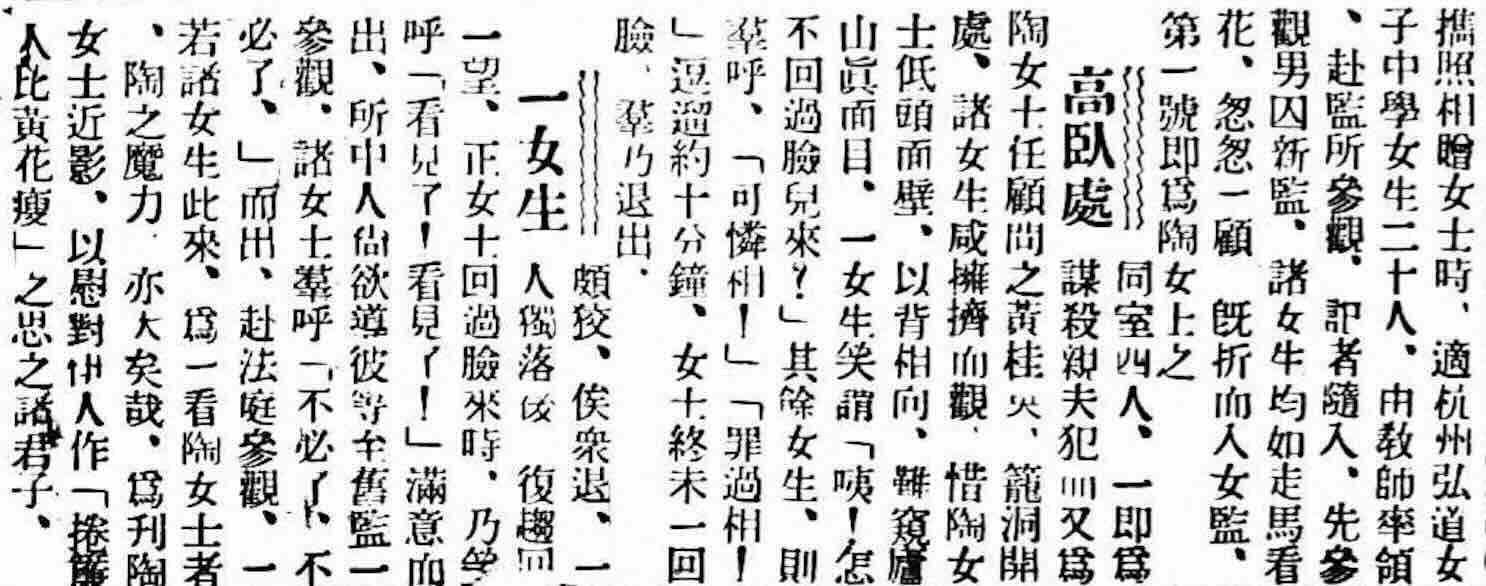 攜照相贈女士時、適杭州弘道女
子中學女生二十人、由敎師率領
、赴監所參觀、記者隨入、先參
觀男囚新監、諸女生均如走馬看
花、忽忽一顧 旣折而入女監、
第一號卽爲陶女士之
高臥處
同室四人、一卽爲
謀殺親夫犯 又爲
陶女士任顧問之黃桂 、籠洞開
處、諸女生咸擁擠而觀、惜陶女
士低頭面壁、以背相向、難窺廬
山眞面目、一女生笑謂「咦！怎
不回過臉兒來？」其餘女生、則
羣呼、「可憐相！」「罪過相！
」逗遛約十分鐘、女士終未一回
臉、羣乃退出、
一女生
頗狡、俟衆退、一
人獨落後 復趨回
一望、正女士回過臉來時、乃笑
呼「看見了！看見了！」滿意而
出、所中人尙欲導彼等至舊監一
參觀、諸女士羣呼「不必了、不
必了、」而出、赴法庭參觀、一
若諸女生此來、爲一看陶女士者
、陶之魔力、亦大矣哉、爲刊陶
女士近影、以慰對伊人作「捲簾
人比黃花瘦」之思之諸君子、